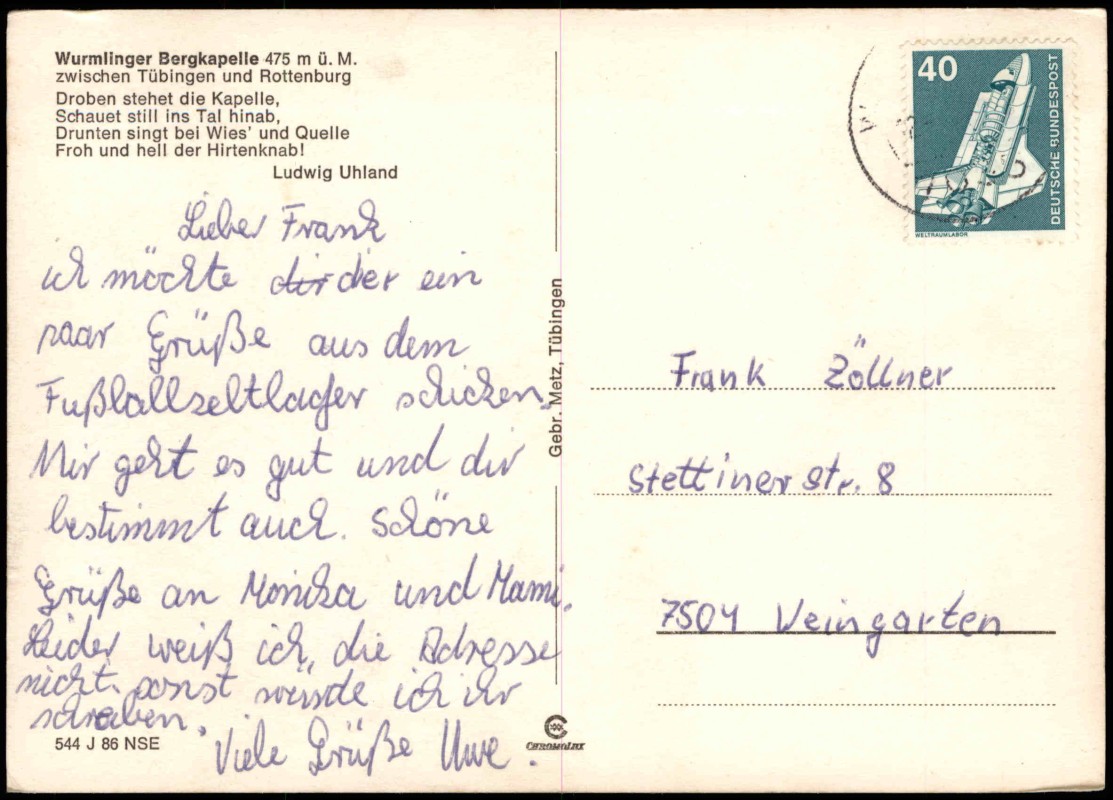 Wurmlinger Bergkapelle 475 m ü. M.
zwischen Tübingen und Rottenburg
Droben stehet die Kapelle,
Schauet still ins Tal hinab,
Drunten singt bei Wies' und Quelle
Froh und hell der Hirtenknab!
Ludwig Uhland
Lieber Frank
ich möchte dir der ein
paar Grüße aus dem
Fußballzeltlager schicken.
Mir geht es gut und dir
bestimmt auch. Schöne
Grüße an Monika und Mami.
Leider weiß ich, die Adresse
nicht. sonst würde ich ihr
schreiben.
Viele Grüße Uwe.
544 J 86 NSE
Gebr. Metz, Tübingen
CHROMOLUX
40
DEUTSCHE BUNDESPOST
WELTRAUMLABOR
Frank Zöllner
Stettiner str. 8
7504 Veingarten